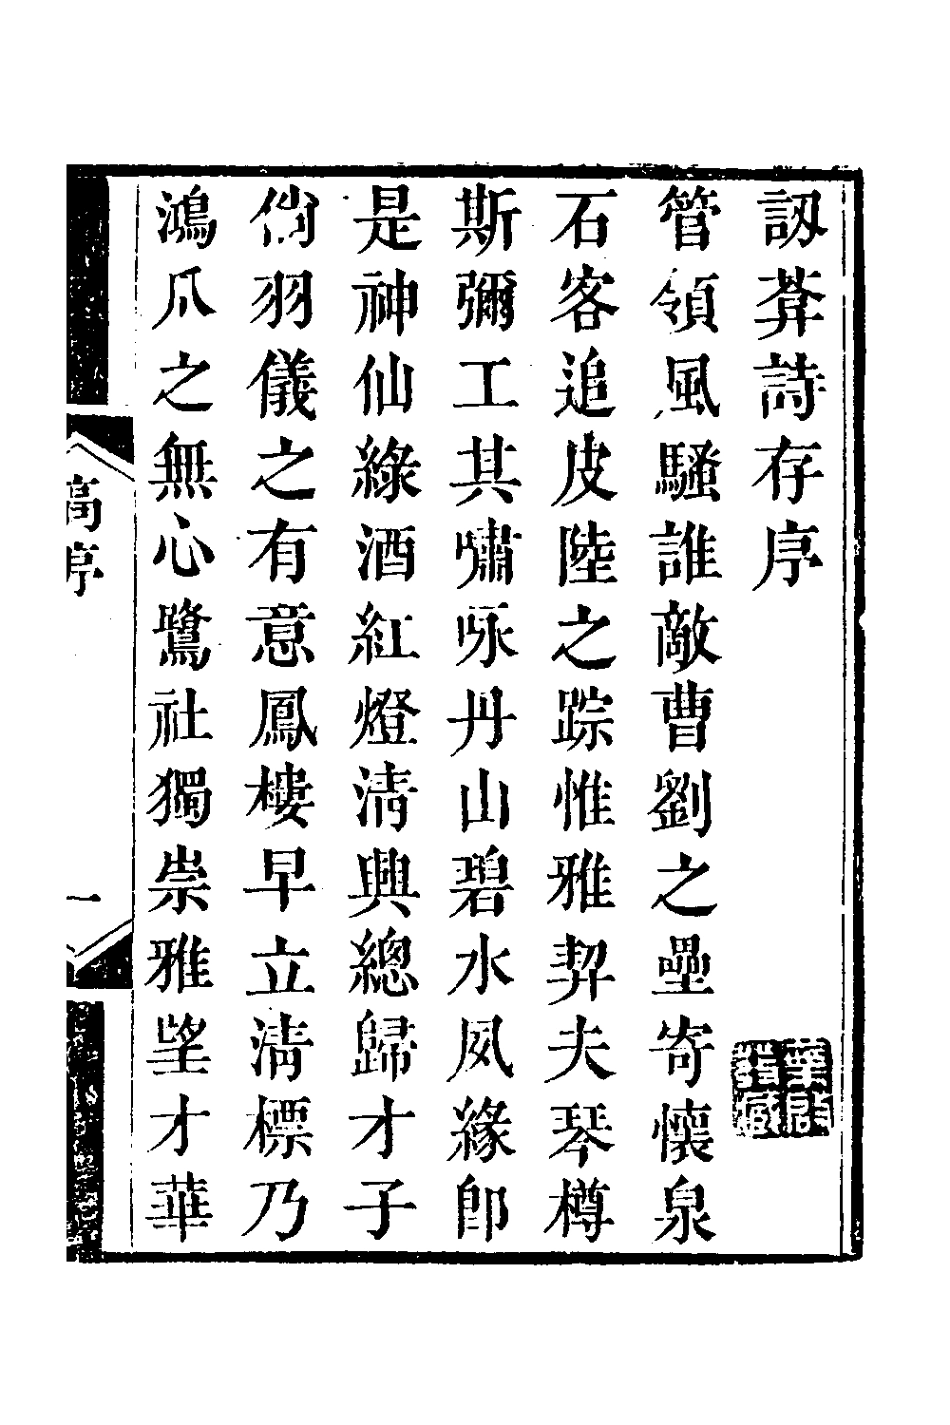 訒葊詩存序
管領風騷誰敵曹劉之壘寄懷泉
石客追皮陸之踪惟雅契夫琴樽
斯彌工其嘯咏丹山碧水夙緣卽
是神仙綠酒紅燈清興總歸才子
倘羽儀之有意鳳樓早立清標乃
鴻爪之無心鷺社獨崇雅望才華
高序
一